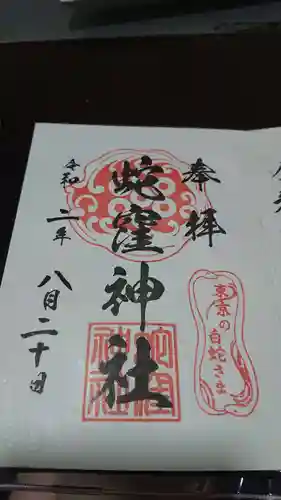 奉拝
蛇窪神社
令和二年
八月二十日
東京の白蛇さま
蛇窪神社